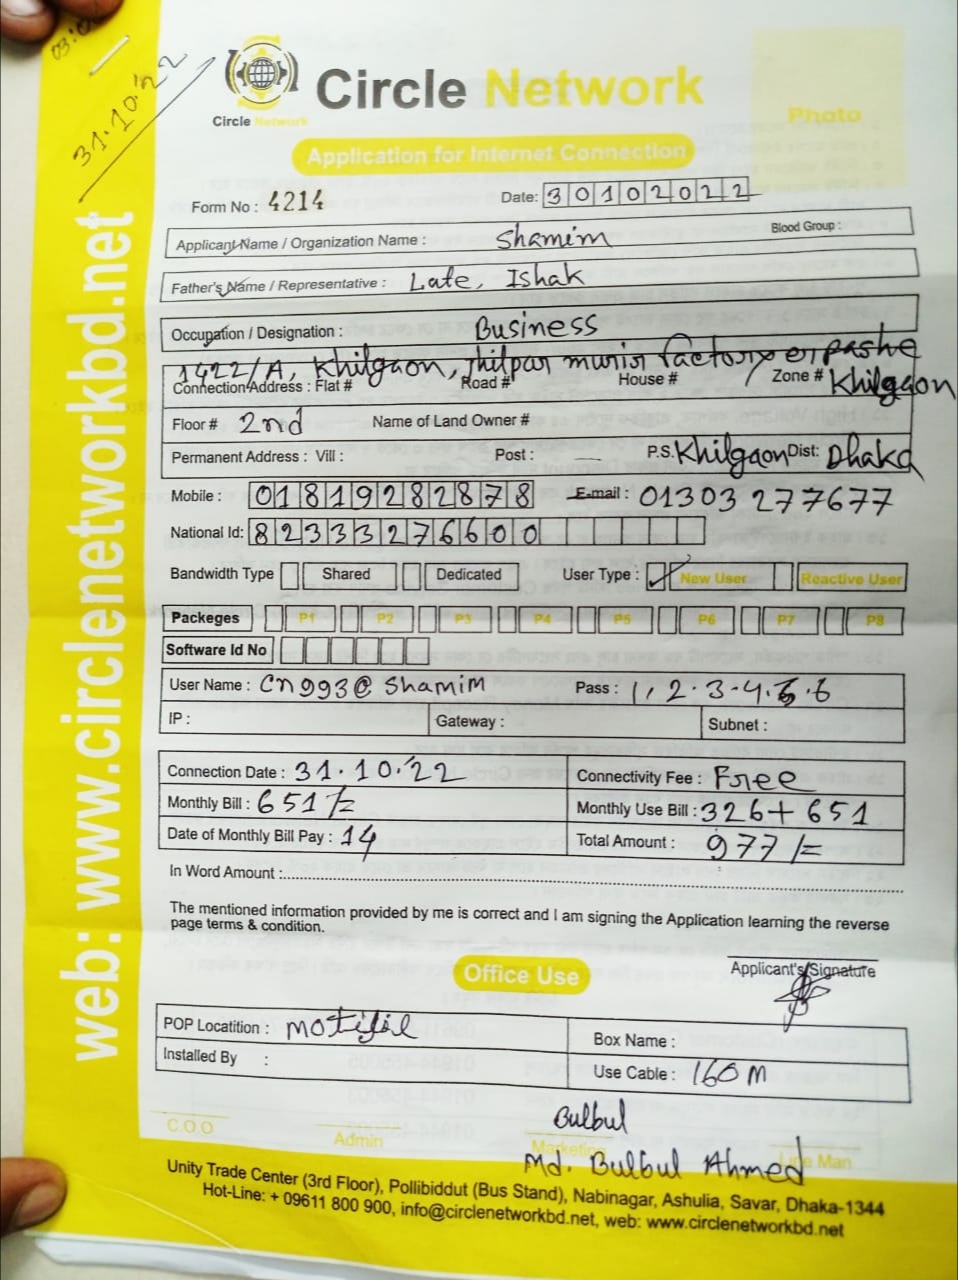 31.10.'22
Circle Network
Circle Network
Photo
Application for Internet Connection
Form No : 4214
Date: 30102022
Applicant Name / Organization Name : Shamim
Blood Group :
Father's Name / Representative : Late, Ishak
Occupation / Designation : Business
1422/A, Khilgaon, Jhilpar murir factory er pashe
Connection Address : Flat # Road # House # Zone # Khilgaon
Floor # 2nd Name of Land Owner #
Permanent Address : Vill : Post : P.S. Khilgaon Dist: Dhaka
Mobile : 01819282878 E-mail : 01303 277677
National Id: 82333276600
Bandwidth Type Shared Dedicated User Type : New User Reactive User
Packeges P1 P2 P3 P4 P5 P6 P7 P8
Software Id No
User Name : Cn993@Shamim Pass : 1,2.3.4.5.6
IP : Gateway : Subnet :
Connection Date : 31.10.'22 Connectivity Fee : Free
Monthly Bill : 651/= Monthly Use Bill : 326+651
Date of Monthly Bill Pay : 14 Total Amount : 977/=
In Word Amount :
The mentioned information provided by me is correct and I am signing the Application learning the reverse
page terms & condition.
Applicant's Signature
Office Use
POP Locatition : Motijil Box Name :
Installed By : Use Cable : 160M
Bulbul
C.O.O Admin Marketing Line Man
Md. Bulbul Ahmed
Unity Trade Center (3rd Floor), Pollibiddut (Bus Stand), Nabinagar, Ashulia, Savar, Dhaka-1344
Hot-Line: + 09611 800 900, info@circlenetworkbd.net, web: www.circlenetworkbd.net
web: www.circlenetworkbd.net